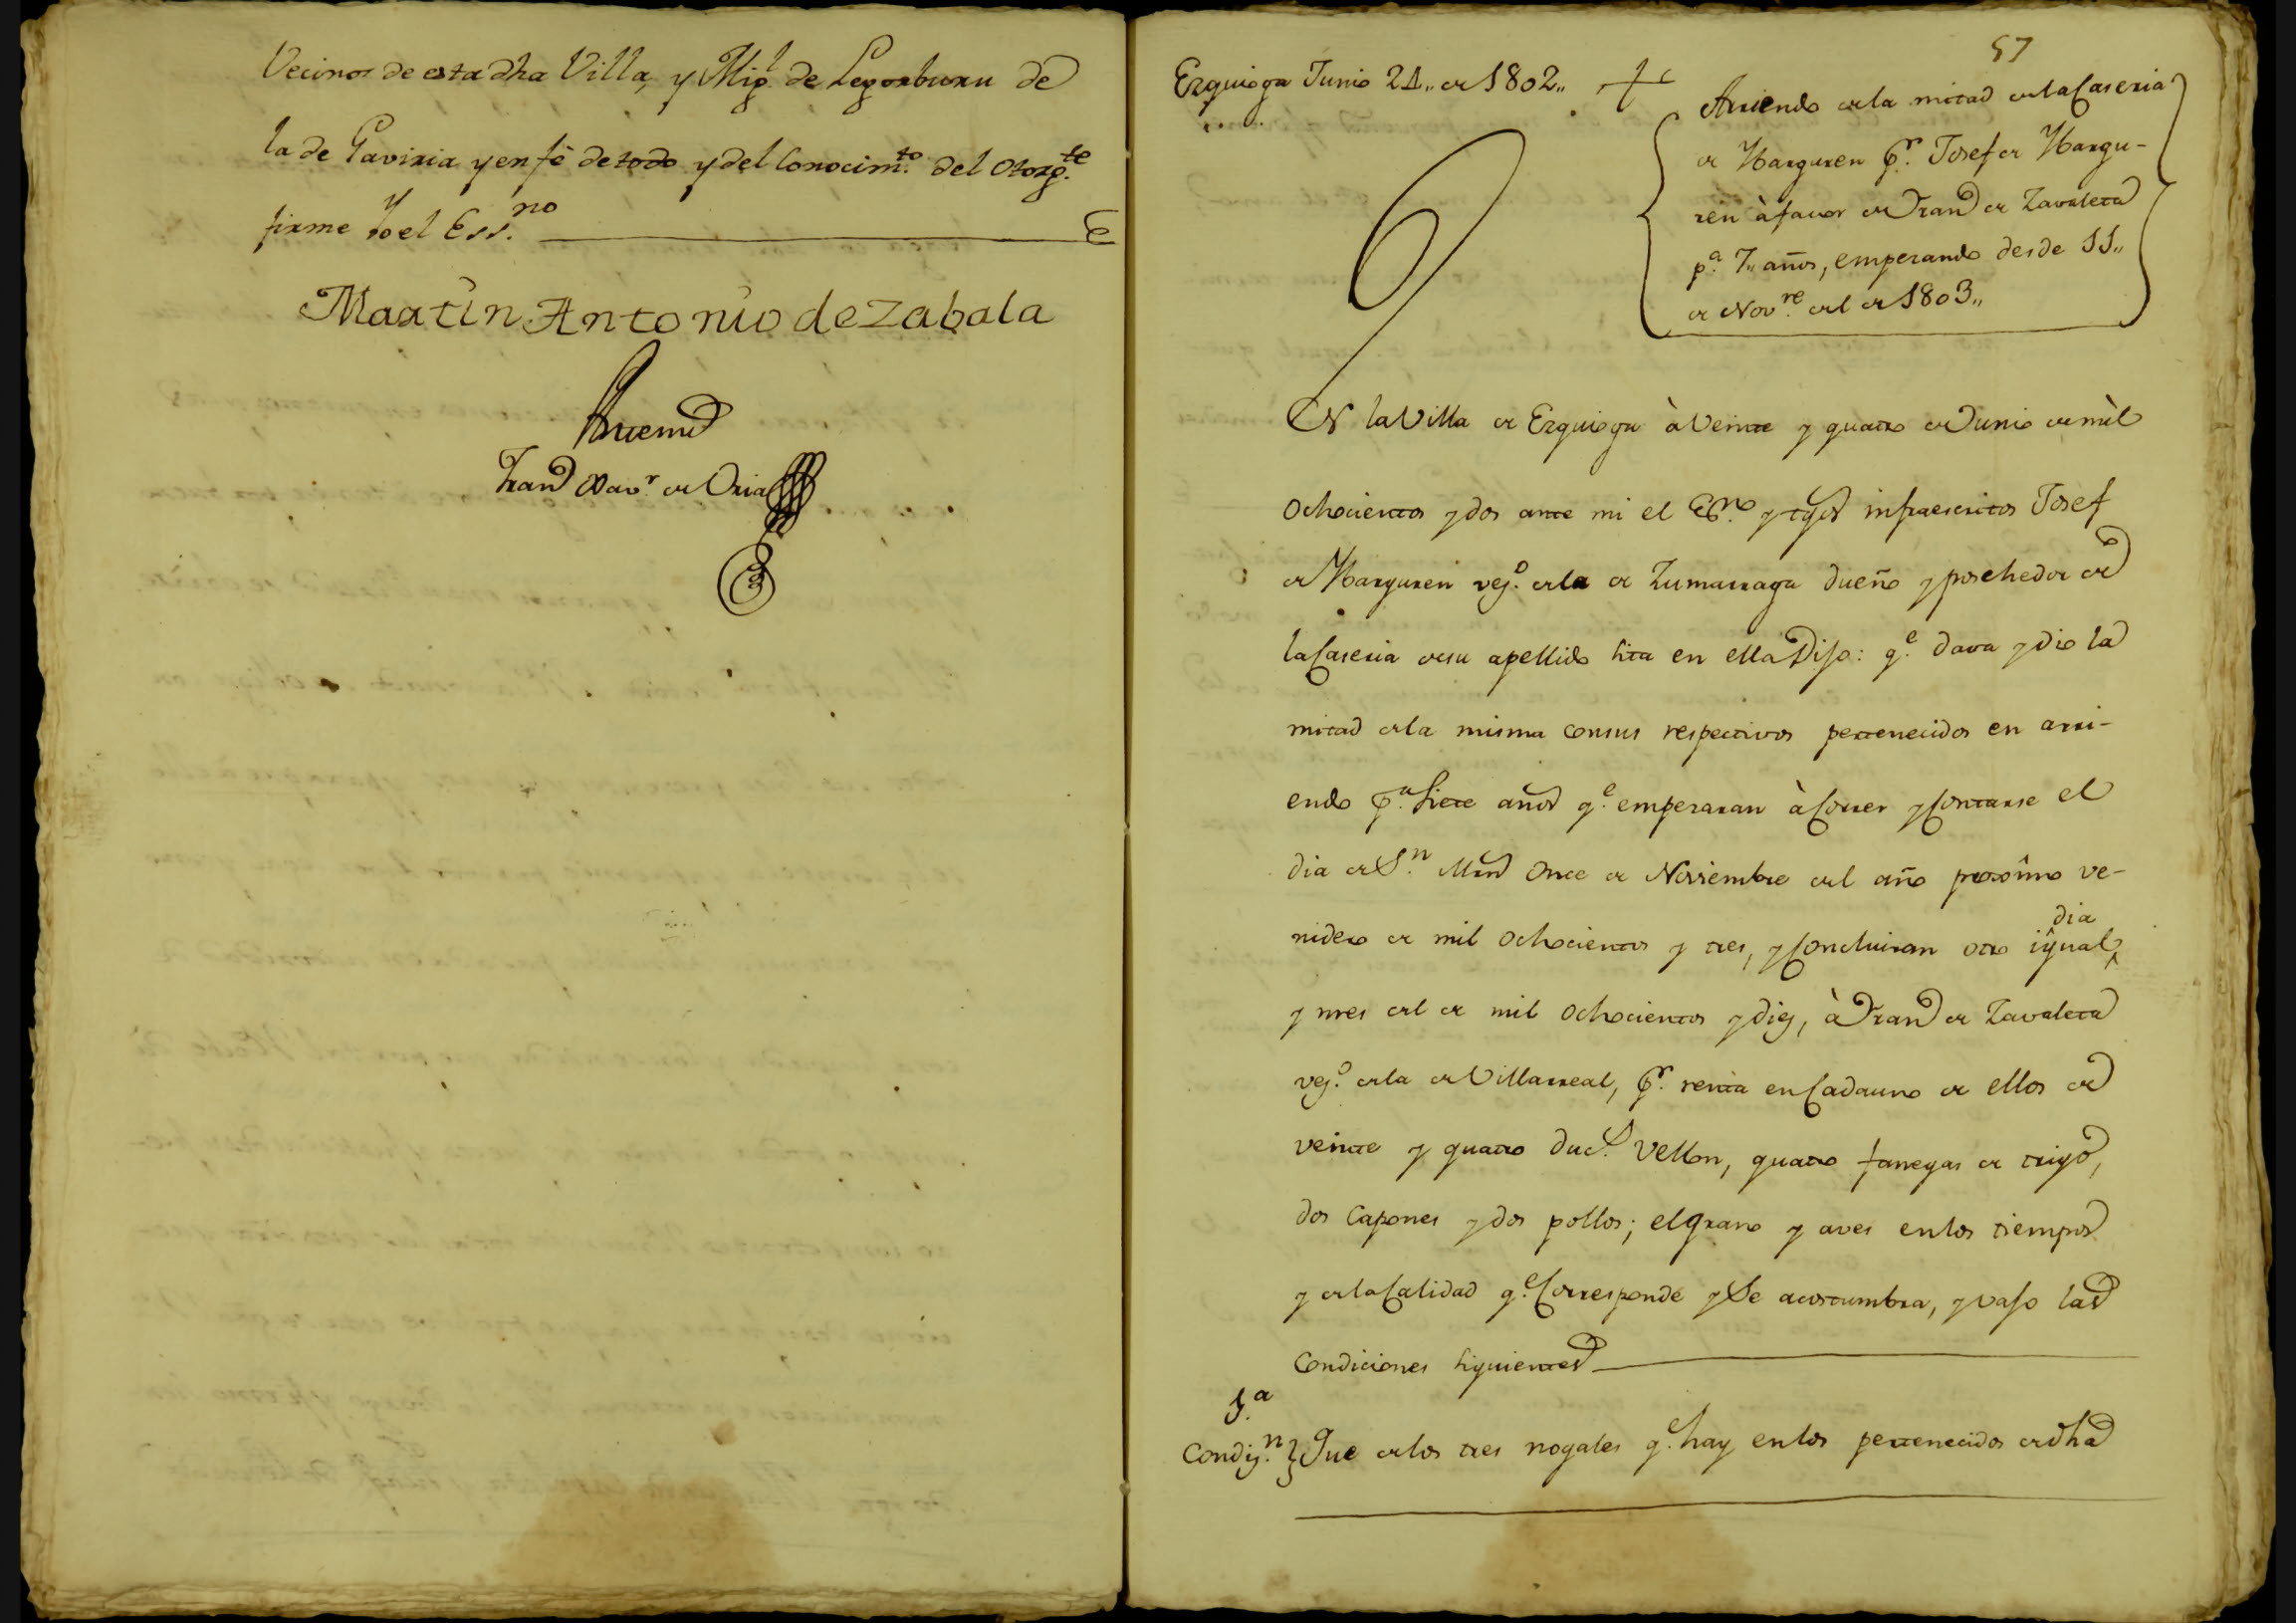 Vecinos de esta dha Villa, y Migl. de Legorburu de
la de Gaviria y en fè de todo y del Conocimto. del Otorgte.
firme Yo el Essno.
Martin Antonio de Zabala
Antemi
Franco Xavr. de Oria
57
Ezquioga Junio 24,, de 1802,,
Arriendo de la mitad de la Caseria
de Ybarguren pr. Josef de Ybargu-
ren à favor de Franco de Zavaleta
pa. 7,, años, empezando desde 11,,
de Novre. del de 1803,,
En la Villa de Ezquioga à Veinte y quatro de Junio de mil
Ochocientos y dos ante mi el Esno. y tgos infraescritos Josef
de Ybarguren vezo. de la de Zumarraga dueño y posehedor de
la Caseria de su apellido sita en ella Dijo: qe. dava y dio la
mitad de la misma con sus respectivos pertenecidos en arri-
endo pa. Siete años qe. empezaran à Correr y Contarse el
dia de Sn. Mrn Once de Noviembre del año proximo ve-
nidero de mil Ochocientos y tres, y Concluiran otro igual dia,
y mes del de mil Ochocientos y diez, à Franco de Zavaleta
vezo. de la de Villarreal, pr. renta en Cada uno de ellos de
veinte y quatro ducs. Vellon, quatro fanegas de trigo,
dos Capones y dos pollos; el grano y aves en los tiempos
y de la Calidad qe. Corresponde y Se acostumbra, y vajo las
Condiciones siguientes
1.a
Condizn. Que de los tres nogales qe. hay en los pertenecidos de dha